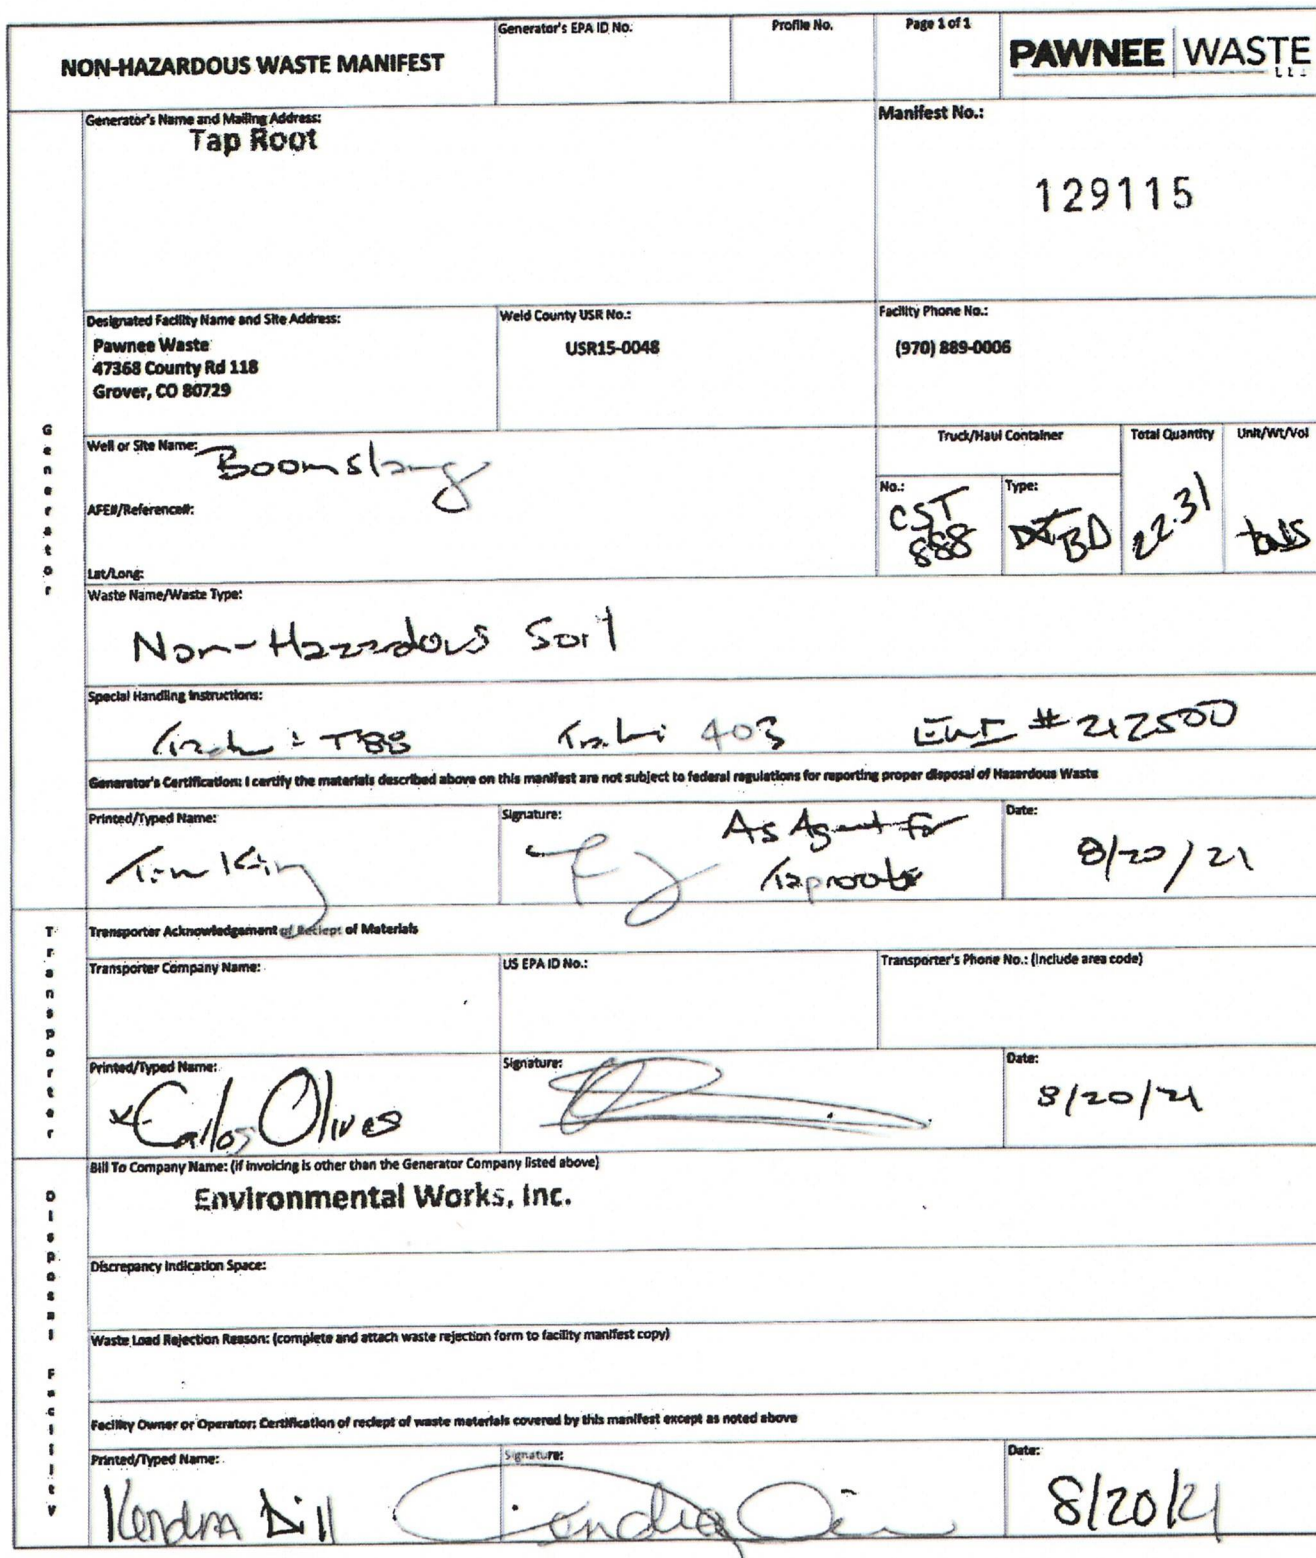 NON-HAZARDOUS WASTE MANIFEST
Generator's EPA ID No.
Profile No.
Page 1 of 1
PAWNEE | WASTE
LLC
Generator's Name and Mailing Address:
Tap Root
Manifest No.:
129115
Designated Facility Name and Site Address:
Pawnee Waste
47368 County Rd 118
Grover, CO 80729
Weld County USR No.:
USR15-0048
Facility Phone No.:
(970) 889-0006
Generator
Well or Site Name: Boomslang
AFE#/Reference#:
Lat/Long:
Truck/Haul Container
Total Quantity
Unit/Wt/Vol
No.:
CST
888
Type:
BD
22.31
tons
Waste Name/Waste Type:
Non-Hazardous Soil
Special Handling Instructions:
T88 403 EWI # 212500
Generator's Certification: I certify the materials described above on this manifest are not subject to federal regulations for reporting proper disposal of Hazardous Waste
Printed/Typed Name:
Tim King
Signature:
As Agent for
Taproot
Date:
8/20/21
Transporter
Transporter Acknowledgement of Reciept of Materials
Transporter Company Name:
US EPA ID No.:
Transporter's Phone No.: (Include area code)
Printed/Typed Name:
Carlos Olives
Signature:
Date:
8/20/21
Disposal Facility
Bill To Company Name: (if invoicing is other than the Generator Company listed above)
Environmental Works, Inc.
Discrepancy Indication Space:
Waste Load Rejection Reason: (complete and attach waste rejection form to facility manifest copy)
Facility Owner or Operator: Certification of reciept of waste materials covered by this manifest except as noted above
Printed/Typed Name:
Kendra Dill
Signature:
Date:
8/20/21